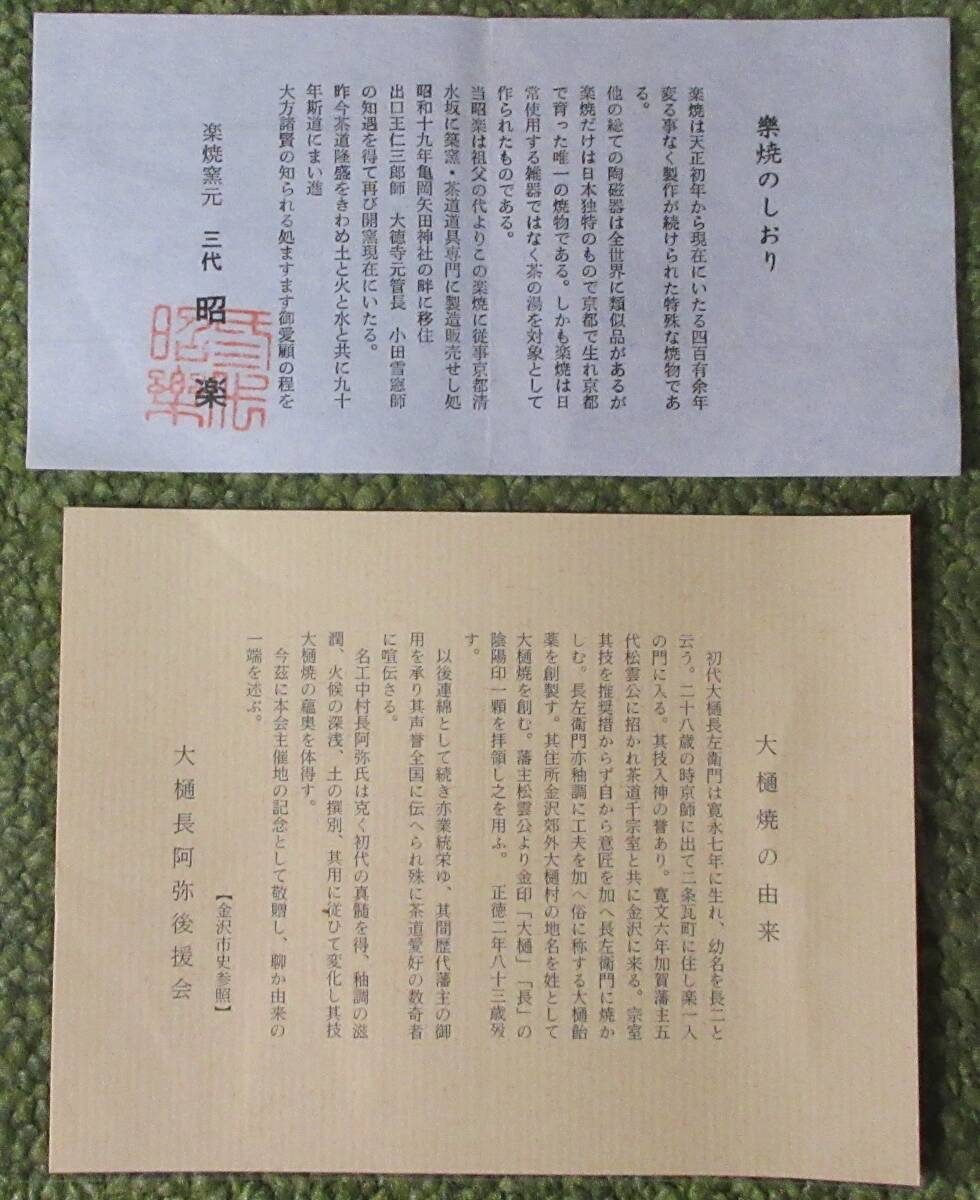 樂焼のしおり
楽焼は天正初年から現在にいたる四百有余年
変る事なく製作が続けられた特殊な焼物であ
る。
他の総ての陶磁器は全世界に類似品があるが
楽焼だけは日本独特のもので京都で生れ京都
で育った唯一の焼物である。しかも楽焼は日
常使用する雑器ではなく茶の湯を対象として
作られたものである。
当昭楽は祖父の代よりこの楽焼に従事京都清
水坂に築窯・茶道道具専門に製造販売せし処
昭和十九年亀岡矢田神社の畔に移住
出口王仁三郎師　大徳寺元管長　小田雪窓師
の知遇を得て再び開窯現在にいたる。
昨今茶道隆盛をきわめ土と火と水と共に九十
年斯道にまい進
大方諸賢の知られる処ますます御愛顧の程を
楽焼窯元　三代　昭楽
大樋焼の由来
初代大樋長左衛門は寛永七年に生れ、幼名を長二と
云う。二十八歳の時京師に出て二条瓦町に住し楽一入
の門に入る。其技入神の誉あり。寛文六年加賀藩主五
代松雲公に招かれ茶道千宗室と共に金沢に来る。宗室
其技を推奨措からず自から意匠を加へ長左衛門に焼か
しむ。長左衛門亦釉調に工夫を加へ俗に称する大樋飴
薬を創製す。其住所金沢郊外大樋村の地名を姓として
大樋焼を創む。藩主松雲公より金印「大樋」「長」の
陰陽印一顆を拝領し之を用ふ。　正徳二年八十三歳歿
す。
以後連綿として続き亦業統栄ゆ、其間歴代藩主の御
用を承り其声誉全国に伝へられ殊に茶道愛好の数奇者
に喧伝さる。
名工中村長阿弥氏は克く初代の真髄を得、釉調の滋
潤、火候の深浅、土の撰別、其用に従ひて変化し其技
大樋焼の蘊奥を体得す。
今茲に本会主催地の記念として敬贈し、聊か由来の
一端を述ぶ。
【金沢市史参照】
大樋長阿弥後援会